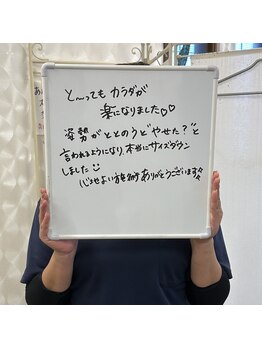 と〜ってもカラダが
楽になりました♡♡
姿勢がととのうと"やせた?"と
言われるようになり、本当にサイズダウン
しました
ありがとうございます